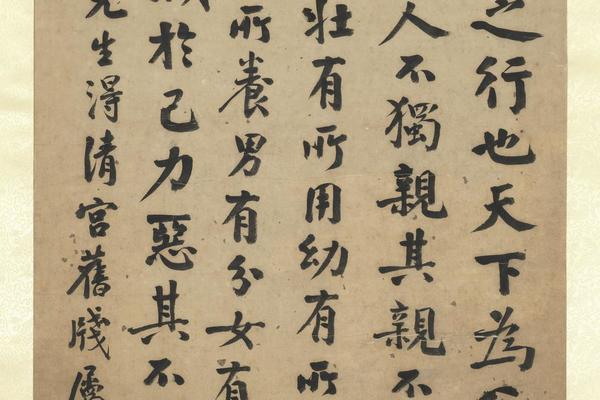 之行也天下為
人不獨親其親不
壯有所用幼有所
所養男有分女有
於己力惡其不
先生得清宮舊牋屬